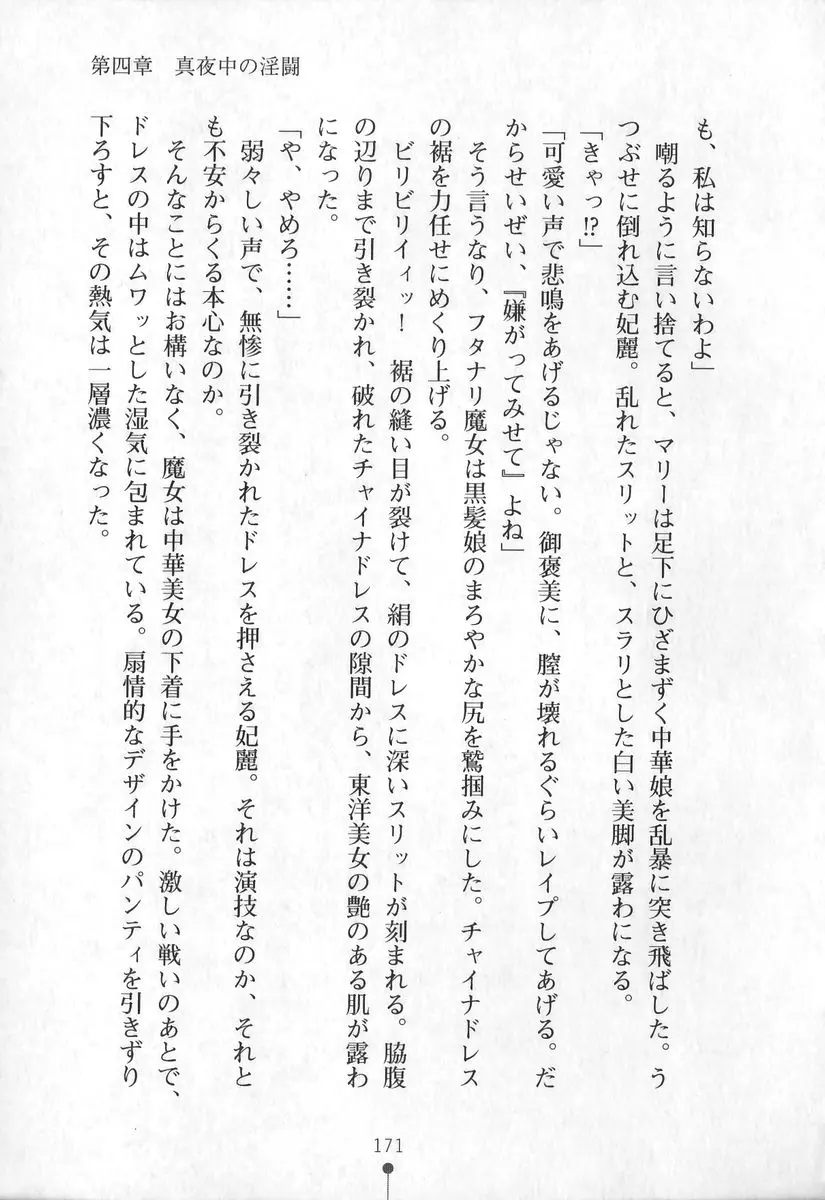 第四章　真夜中の淫闘
も、私は知らないわよ」
　嘲るように言い捨てると、マリーは足下にひざまずく中華娘を乱暴に突き飛ばした。う
つぶせに倒れ込む妃麗。乱れたスリットと、スラリとした白い美脚が露わになる。
「きゃっ!?」
「可愛い声で悲鳴をあげるじゃない。御褒美に、膣が壊れるぐらいレイプしてあげる。だ
からせいぜい、『嫌がってみせて』よね」
　そう言うなり、フタナリ魔女は黒髪娘のまろやかな尻を鷲掴みにした。チャイナドレス
の裾を力任せにめくり上げる。
　ビリビリイィッ！　裾の縫い目が裂けて、絹のドレスに深いスリットが刻まれる。脇腹
の辺りまで引き裂かれ、破れたチャイナドレスの隙間から、東洋美女の艶のある肌が露わ
になった。
「や、やめろ……」
　弱々しい声で、無惨に引き裂かれたドレスを押さえる妃麗。それは演技なのか、それと
も不安からくる本心なのか。
　そんなことにはお構いなく、魔女は中華美女の下着に手をかけた。激しい戦いのあとで、
ドレスの中はムワッとした湿気に包まれている。扇情的なデザインのパンティを引きずり
下ろすと、その熱気は一層濃くなった。
171